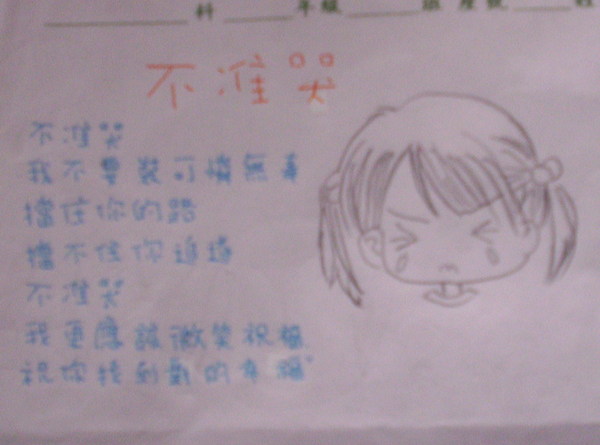 科 年級 班 座號 姓
不准哭
不准哭
我不要裝可憐無辜
擋住你的路
擋不住你追逐
不准哭
我更應該微笑祝福
祝你找到新的幸福